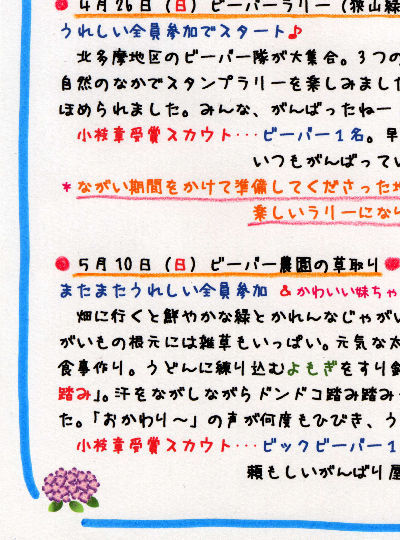 4月26日（日）ビーバーラリー（狭山緑
うれしい全員参加でスタート♪
北多摩地区のビーバー隊が大集合。3つの
自然のなかでスタンプラリーを楽しみまし
ほめられました。みんな、がんばったねー
小枝章受賞スカウト・・・ビーバー1名。早
いつもがんばってい
*ながい期間をかけて準備してくださった地
楽しいラリーになり
5月10日（日）ビーバー農園の草取り
またまたうれしい全員参加 &かわいい妹ちゃ
畑に行くと鮮やかな緑とかれんなじゃがい
がいもの根元には雑草もいっぱい。元気な太
食事作り。うどんに練り込むよもぎをすり鉢
踏み」。汗をながしながらドンドコ踏み踏み
た。「おかわり～」の声が何度もひびき、う
小枝章受賞スカウト・・・ビックビーバー1
頼もしいがんばり屋